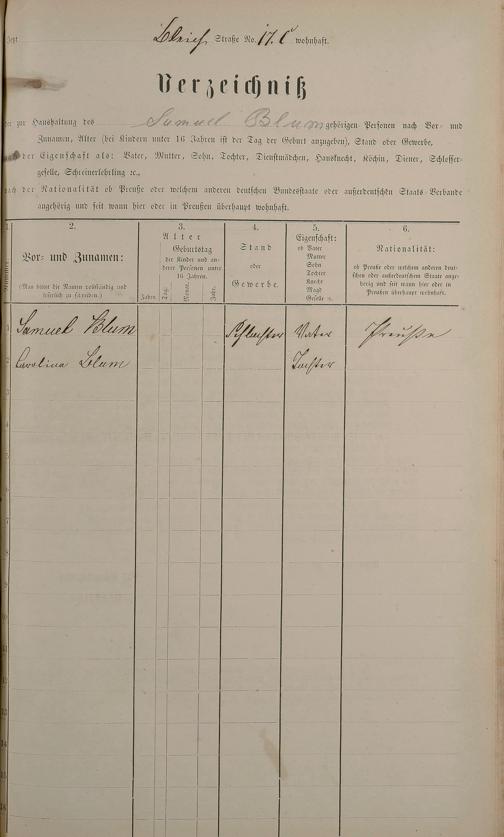 Jetzt Bleich Straße No. 17. C wohnhaft.
Verzeichniß
der zur Haushaltung des Samuel Blum gehörigen Personen nach Vor- und
Zunamen, Alter (bei Kindern unter 16 Jahren ist der Tag der Geburt anzugeben), Stand oder Gewerbe,
der Eigenschaft als: Vater, Mutter, Sohn, Tochter, Dienstmädchen, Hausknecht, Köchin, Diener, Schlosser-
geselle, Schreinerlehrling ꝛc.,
nach der Nationalität ob Preuße oder welchem anderen deutschen Bundesstaate oder außerdeutschen Staats-Verbande
angehörig und seit wann hier oder in Preußen überhaupt wohnhaft.
1. 2. 3. 4. 5. 6.
Nummer
Vor- und Zunamen:
(Man bittet die Namen vollständig und
leserlich zu schreiben.)
Alter
Geburtstag
der Kinder und an-
derer Personen unter
16 Jahren.
Jahre. Tag. Monat. Jahr.
Stand
oder
Gewerbe.
Eigenschaft:
ob Vater
Mutter
Sohn
Tochter
Knecht
Magd
Geselle ꝛc.
Nationalität:
ob Preuße oder welchem anderen deut-
schen oder außerdeutschem Staate ange-
hörig und seit wann hier oder in
Preußen überhaupt wohnhaft.
1 Samuel Blum Schlachter Vater Preuße
2 Carolina Blum Tochter
3
4
5
6
7
8
9
10
11
12
13
14
15
16